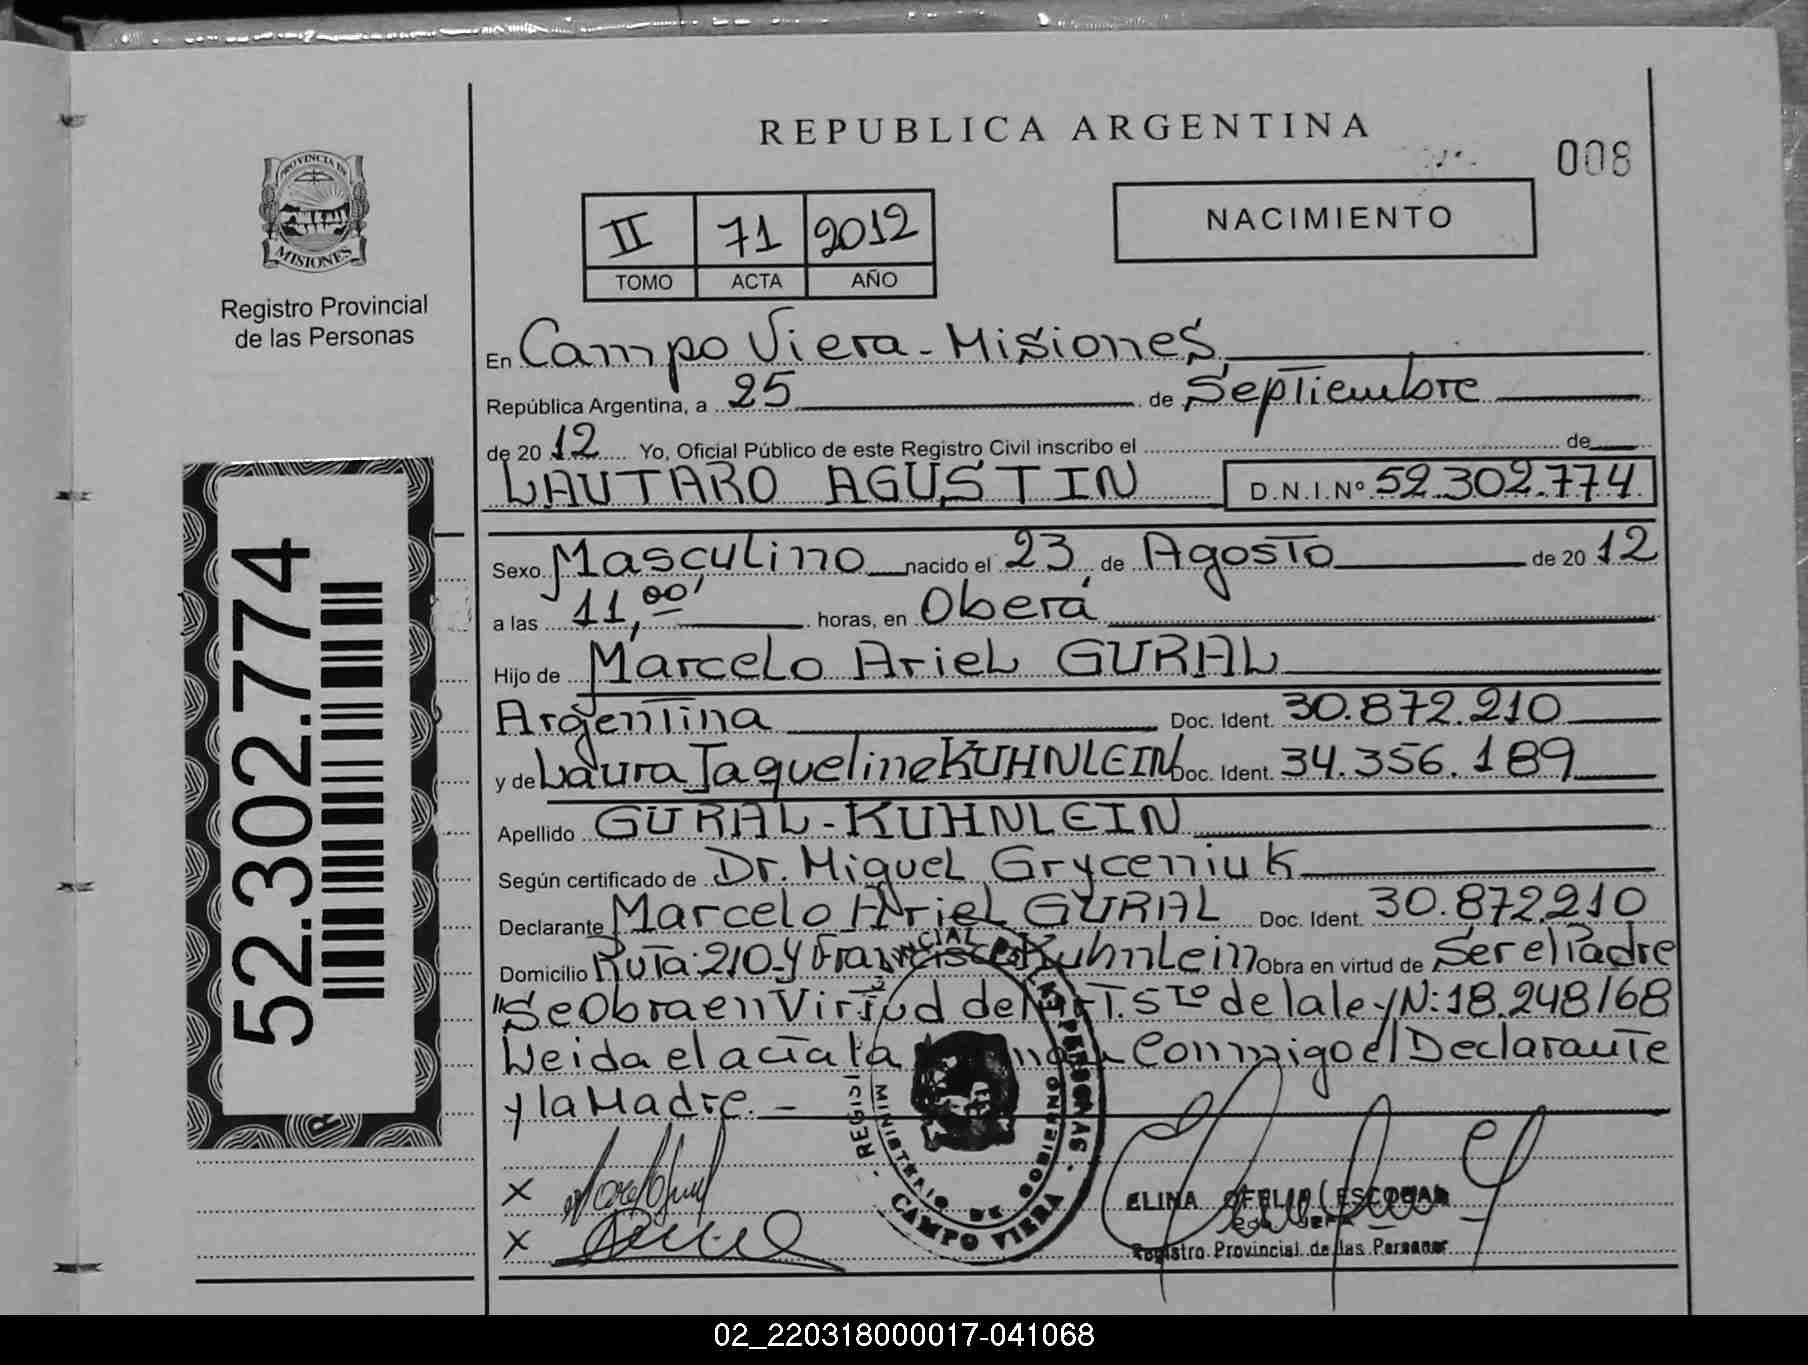 REPUBLICA ARGENTINA
008
PROVINCIA DE
MISIONES
Registro Provincial
de las Personas
II 71 2012
TOMO ACTA AÑO
NACIMIENTO
En Campo Viera - Misiones
República Argentina, a 25 de Septiembre
de 20 12 Yo, Oficial Público de este Registro Civil inscribo el de
LAUTARO AGUSTIN D.N.I.Nº 52.302.774
Sexo Masculino nacido el 23 de Agosto de 20 12
a las 11,00' horas, en Oberá
Hijo de Marcelo Ariel GURAL
Argentina Doc. Ident. 30.872.210
y de Laura Jaqueline KUHNLEIN Doc. Ident. 34.356.189
Apellido GURAL - KUHNLEIN
Según certificado de Dr. Miguel Gryceniuk
Declarante Marcelo Ariel GURAL Doc. Ident. 30.872.210
Domicilio Ruta: 210 y Francisco Kuhnlein Obra en virtud de Ser el Padre
"Se Obra en Virtud del Art. 5to de la ley N: 18.248/68
Leida el acta la Conmigo el Declarante
y la Madre. -
52.302.774
X
X
REGISTRO PROVINCIAL DE LAS PERSONAS
MINISTERIO DE GOBIERNO
CAMPO VIERA
ELINA OFELIA ESCOBAR
JEFA
Registro Provincial de las Personas
02_220318000017-041068